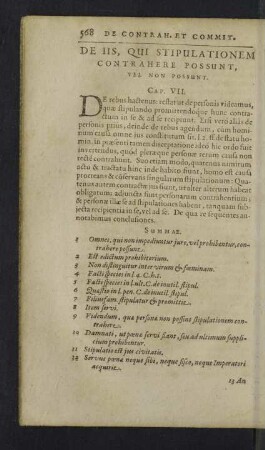 568 DE CONTRAH. ET COMMIT.
DE IIS, QUI STIPULATIONEM
CONTRAHERE POSSUNT,
VEL NON POSSUNT.
CAP. VII.
DE rebus hactenus restat ut de personis videamus,
quæ stipulando promittendoque hunc contra-
ctum in se & ad se recipiunt. Etsi vero alias de
personis prius, deinde de rebus agendum, cum homi-
num causa omne jus conditum sit, l. 2. ff. de statu ho-
min. in præsenti tamen discrepatione ideo hic ordo fuit
jus retinendus, quod plerunque personæ rerum causa non
recte contrahunt. Suo etiam modo, quatenus
actu & tractatu hinc inde habito
procreans & observans singularum stipulationum: Quæ
obligationum autem contrahentium
& personæ illæ se ad stipulationes habent, tanquam subje-
cta recipientia in se, vel ad se. De qua re sequentes an-
notabimus conclusiones.
SUMMAE.
1 Omnes, qui non impediuntur jure, vel prohibentur, con-
trahere possunt.
2 Est edictum prohibitorium.
3 Non distinguitur inter virum & fœminam.
4 Facti species in l. 2. C. h. t.
5 Facti species in l. ult. C. de inutil. stipul.
6 Quæstio in l. pen. C. de inutil. stipul.
7 Filiusfam. stipulatur & promittit.
8 Item servi.
9 Videndum, quæ persona non possint stipulationem con-
trahere.
10 Damnati, ut pœnæ servi fiant, sua ad nitimum suppli-
cium prohibentur.
11 Stipulatio est jus civitatis.
12 Servus pœnæ neque sibi, neque fisco, neque Imperatori
acquirit.
13 An